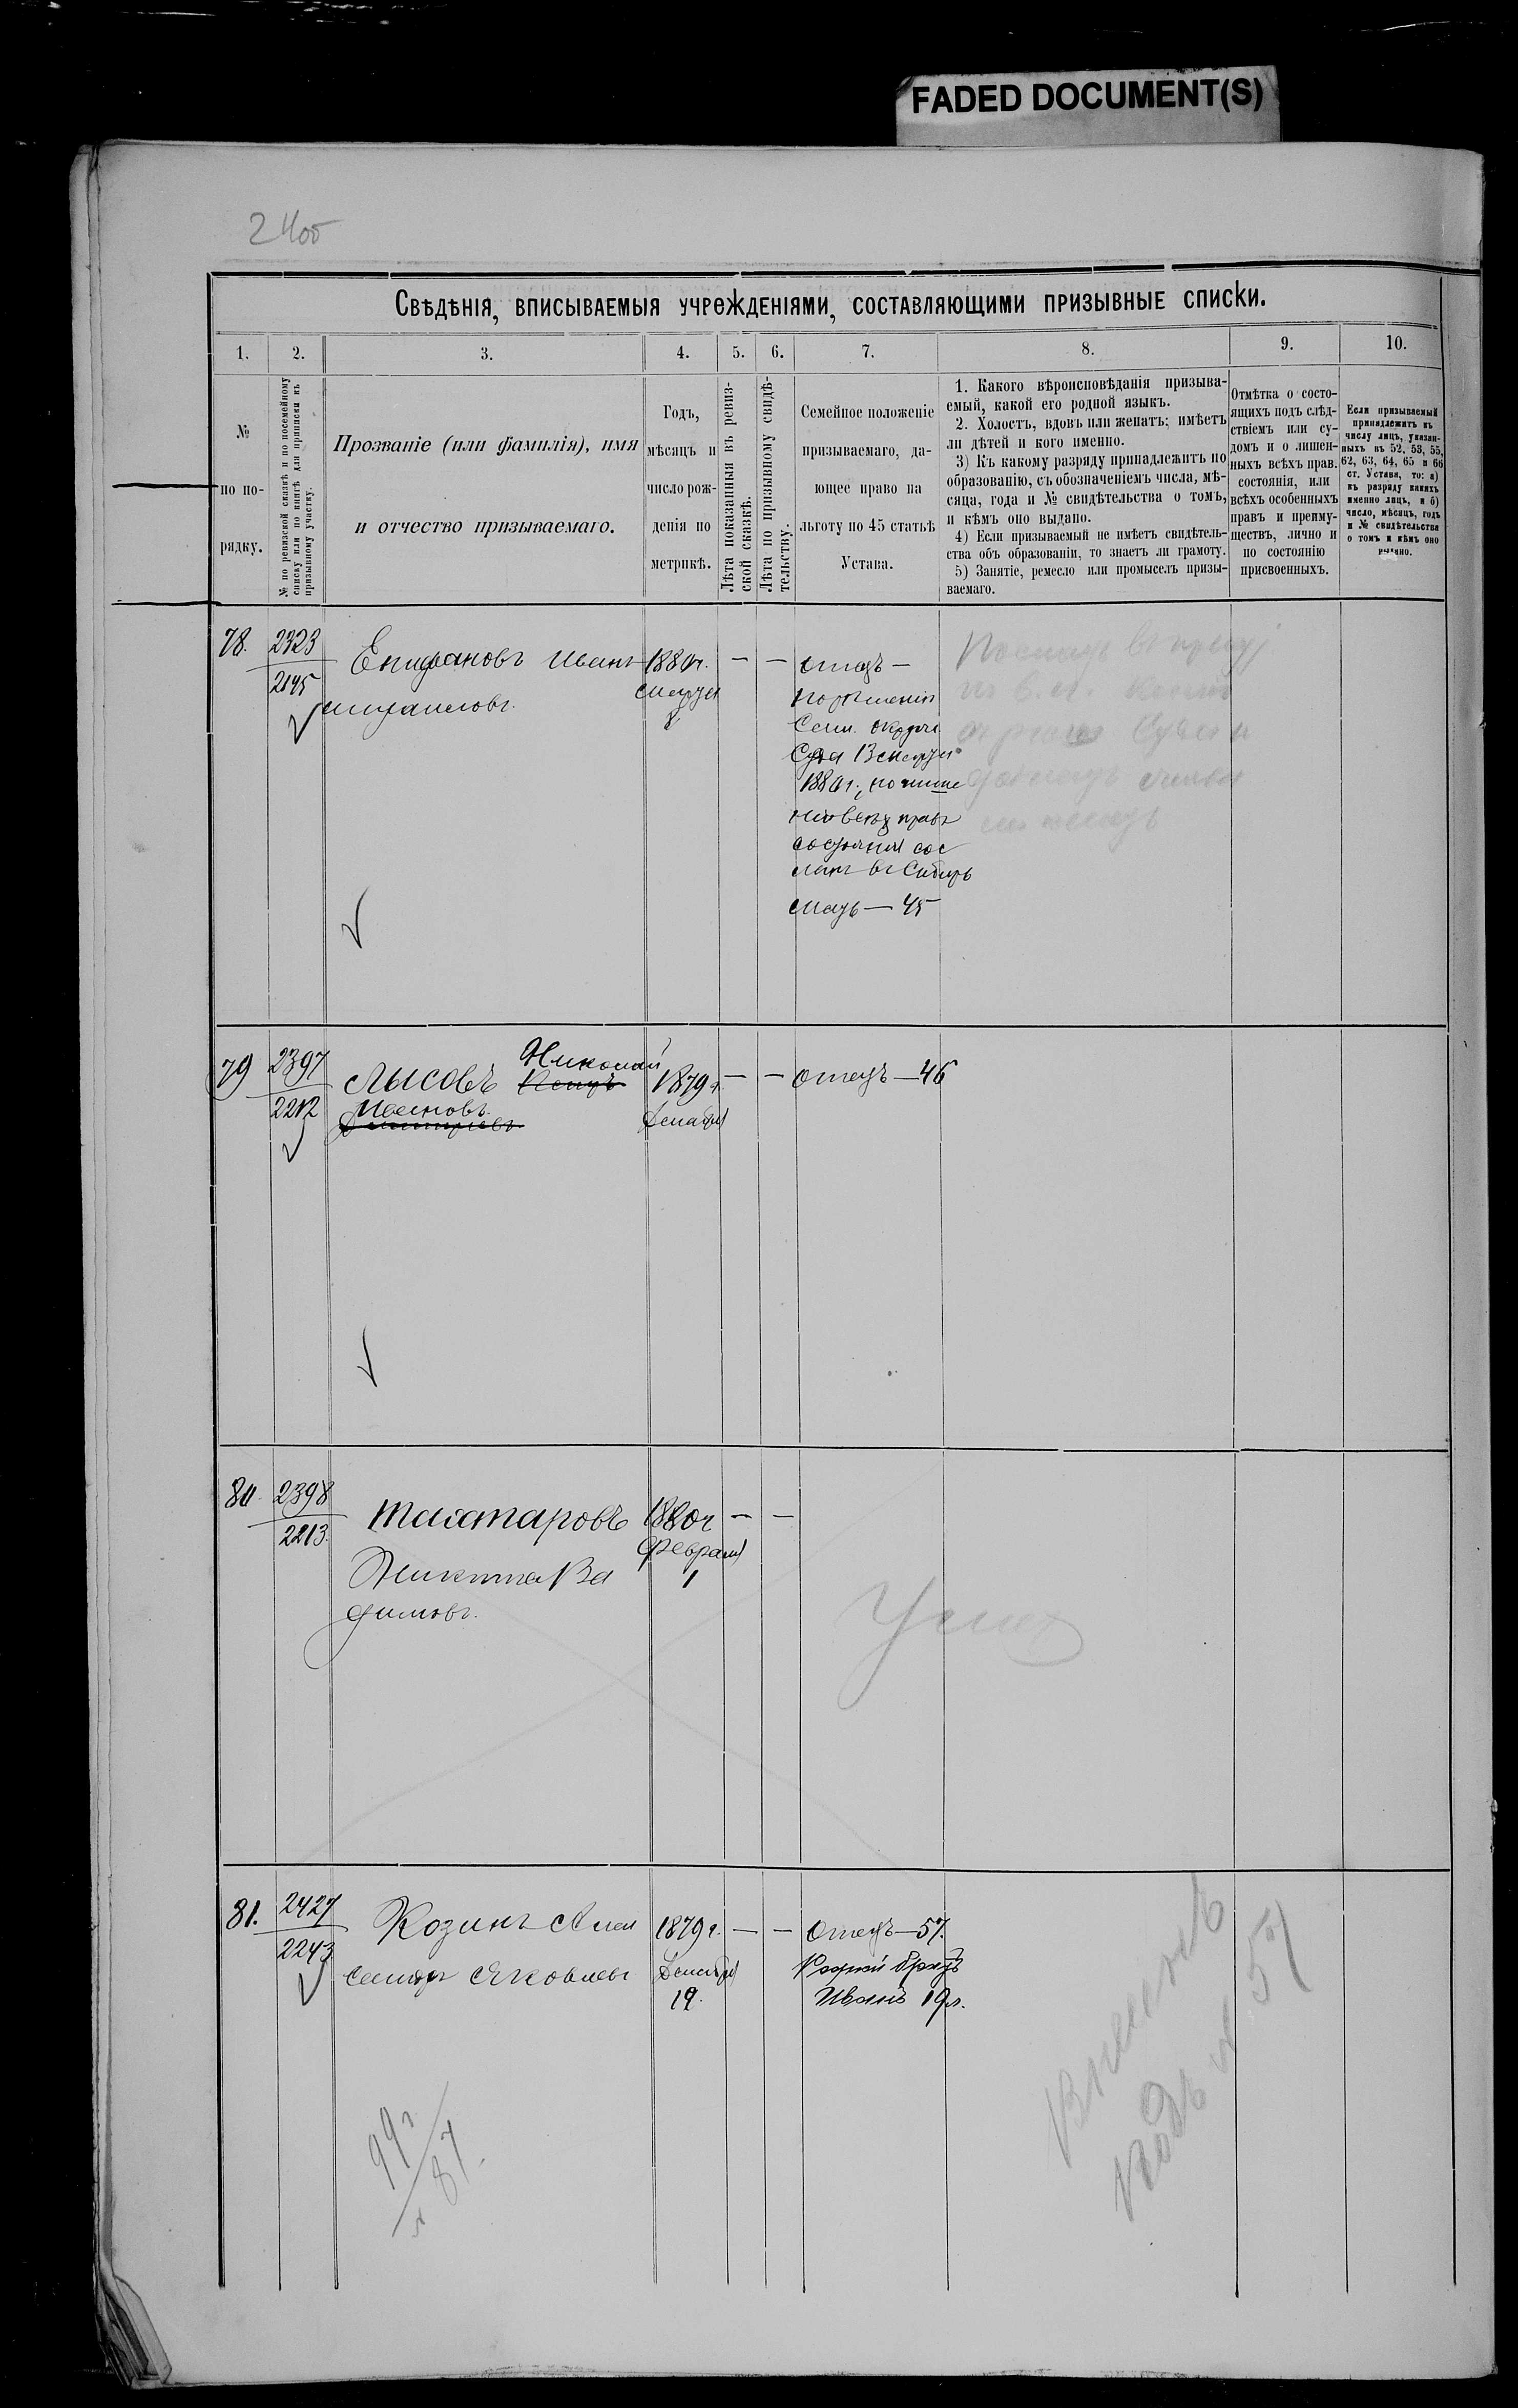 FADED DOCUMENT(S)
24об
Свѣдѣнія, вписываемыя учрежденіями, составляющими призывные списки.
1.
2.
3.
4.
5.
6.
7.
8.
9.
10.
№
по по-
рядку.
№ по ревизской сказкѣ и по посемейному
списку или по книгѣ для приписки къ
призывному участку.
Прозваніе (или фамилія), имя
и отчество призываемаго.
Годъ,
мѣсяцъ и
число рож-
денія по
метрикѣ.
Лѣта показанныя въ ревиз-
ской сказкѣ.
Лѣта по призывному свидѣ-
тельству.
Семейное положеніе
призываемаго, да-
ющее право на
льготу по 45 статьѣ
Устава.
1. Какого вѣроисповѣданія призыва-
емый, какой его родной языкъ.
2. Холостъ, вдовъ или женатъ; имѣетъ
ли дѣтей и кого именно.
3) Къ какому разряду принадлежитъ по
образованію, съ обозначеніемъ числа, мѣ-
сяца, года и № свидѣтельства о томъ,
и кѣмъ оно выдано.
4) Если призываемый не имѣетъ свидѣтель-
ства объ образованіи, то знаетъ ли грамоту.
5) Занятіе, ремесло или промыселъ призы-
ваемаго.
Отмѣтка о состо-
ящихъ подъ слѣд-
ствіемъ или су-
домъ и о лишен-
ныхъ всѣхъ прав.
состоянія, или
всѣхъ особенныхъ
правъ и преиму-
ществъ, лично и
по состоянію
присвоенныхъ.
Если призываемый
принадлежитъ къ
числу лицъ, указан-
ныхъ въ 52, 53, 55,
62, 63, 64, 65 и 66
ст. Устава, то: а)
къ разряду какихъ
именно лицъ, и б)
число, мѣсяцъ, годъ
и № свидѣтельства
о томъ и кѣмъ оно
выдано.
78.
2323
2145
Епифановъ Иванъ
1880г.
8
—
—
отецъ —
по рѣшенію
Сим. Окружн.
Суда 13
1880г., по лише
ніи всѣхъ правъ
состоянія сос
ланъ въ Сибирь
мать — 45
79
2397
2212
Лысовъ Николай
1879г.
Декабря
—
—
отецъ — 46
80.
2398
2213.
Тахтаровъ
Никита Ва
димовъ.
1880г
Февраля
1
—
—
81.
2427
2243
Козинъ Алек
сандръ Яковлевъ
1879г.
Декабря
19.
—
—
Отецъ — 57.
Родной братъ
Иванъ 19 л.
99г
87.
Внесенъ
подъ № 57